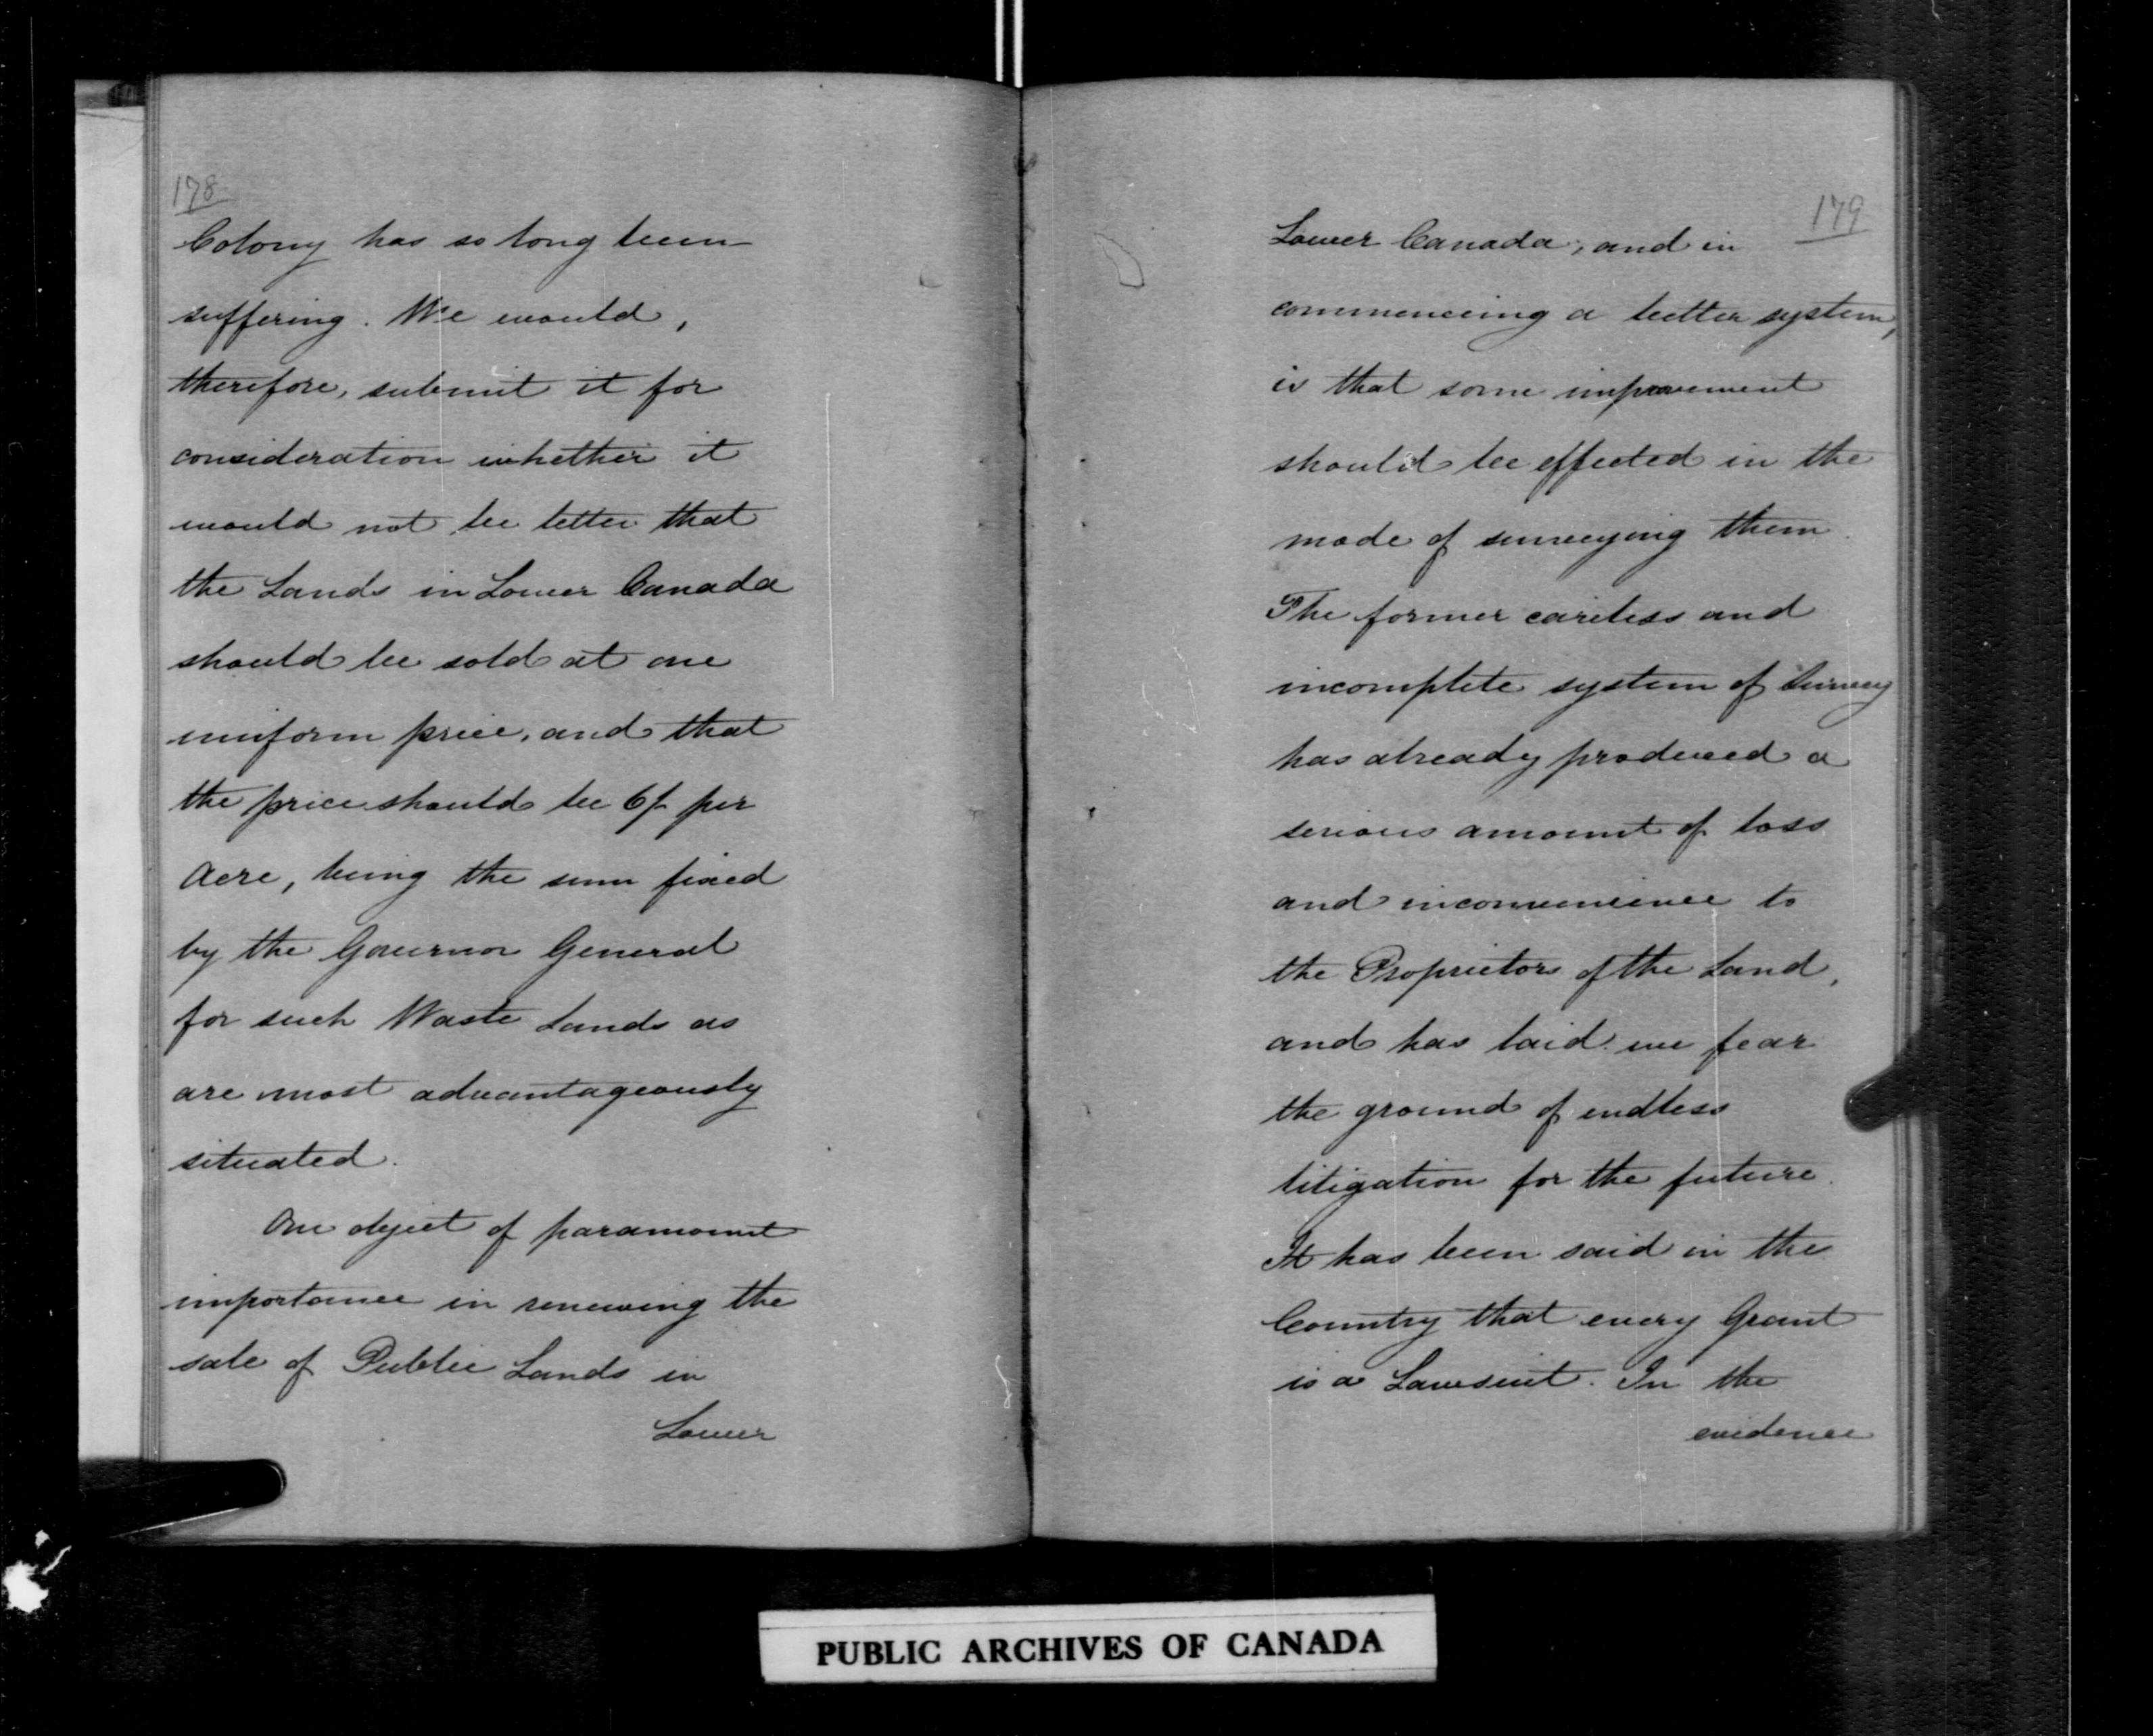 178
Colony has so long been
suffering. We would,
therefore, submit it for
consideration whether it
would not be better that
the Lands in Lower Canada
should be sold at one
uniform price, and that
the price should be 6/- per
Acre, being the sum fixed
by the Governor General
for such Waste Lands as
are most advantageously
situated.
One object of paramount
importance in renewing the
sale of Public Lands in
Lower
179
Lower Canada, and in
commencing a better system,
is that some improvement
should be effected in the
mode of surveying them.
The former careless and
incomplete system of Survey
has already produced a
serious amount of loss
and inconvenience to
the Proprietors of the Land,
and has laid we fear
the ground of endless
litigation for the future.
It has been said in the
Country that every Grant
is a Lawsuit. In the
evidence
PUBLIC ARCHIVES OF CANADA